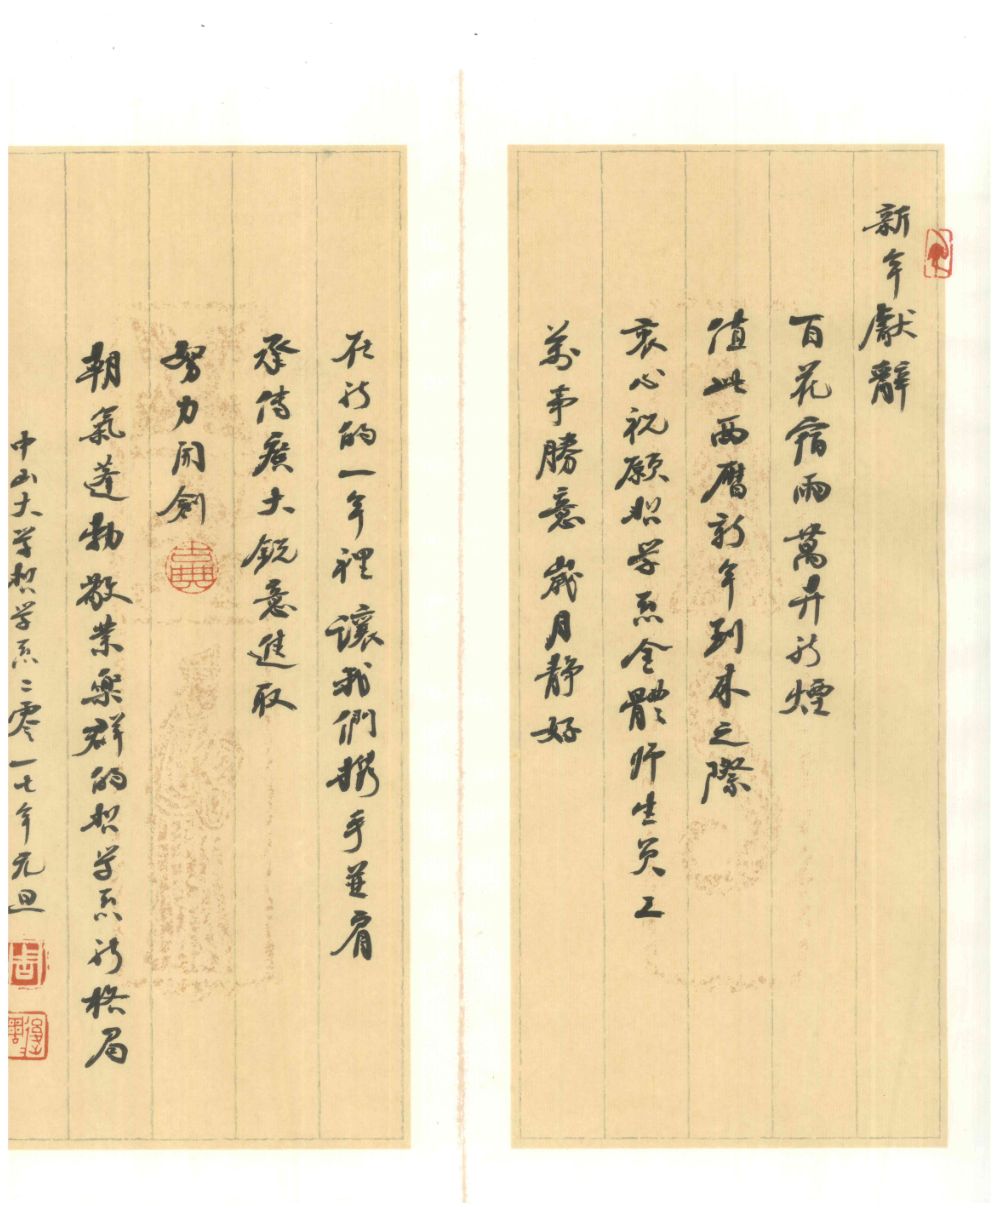 新年獻辭
百花宿雨萬卉新煙
值此西曆新年到来之際
衷心祝願哲学系全體师生员工
萬事勝意 歲月静好
在新的一年裡讓我們携手並肩
承传廣大銳意進取
努力開創
朝氣蓬勃敬業樂群的哲学系新格局
中山大学哲学系二零一七年元旦